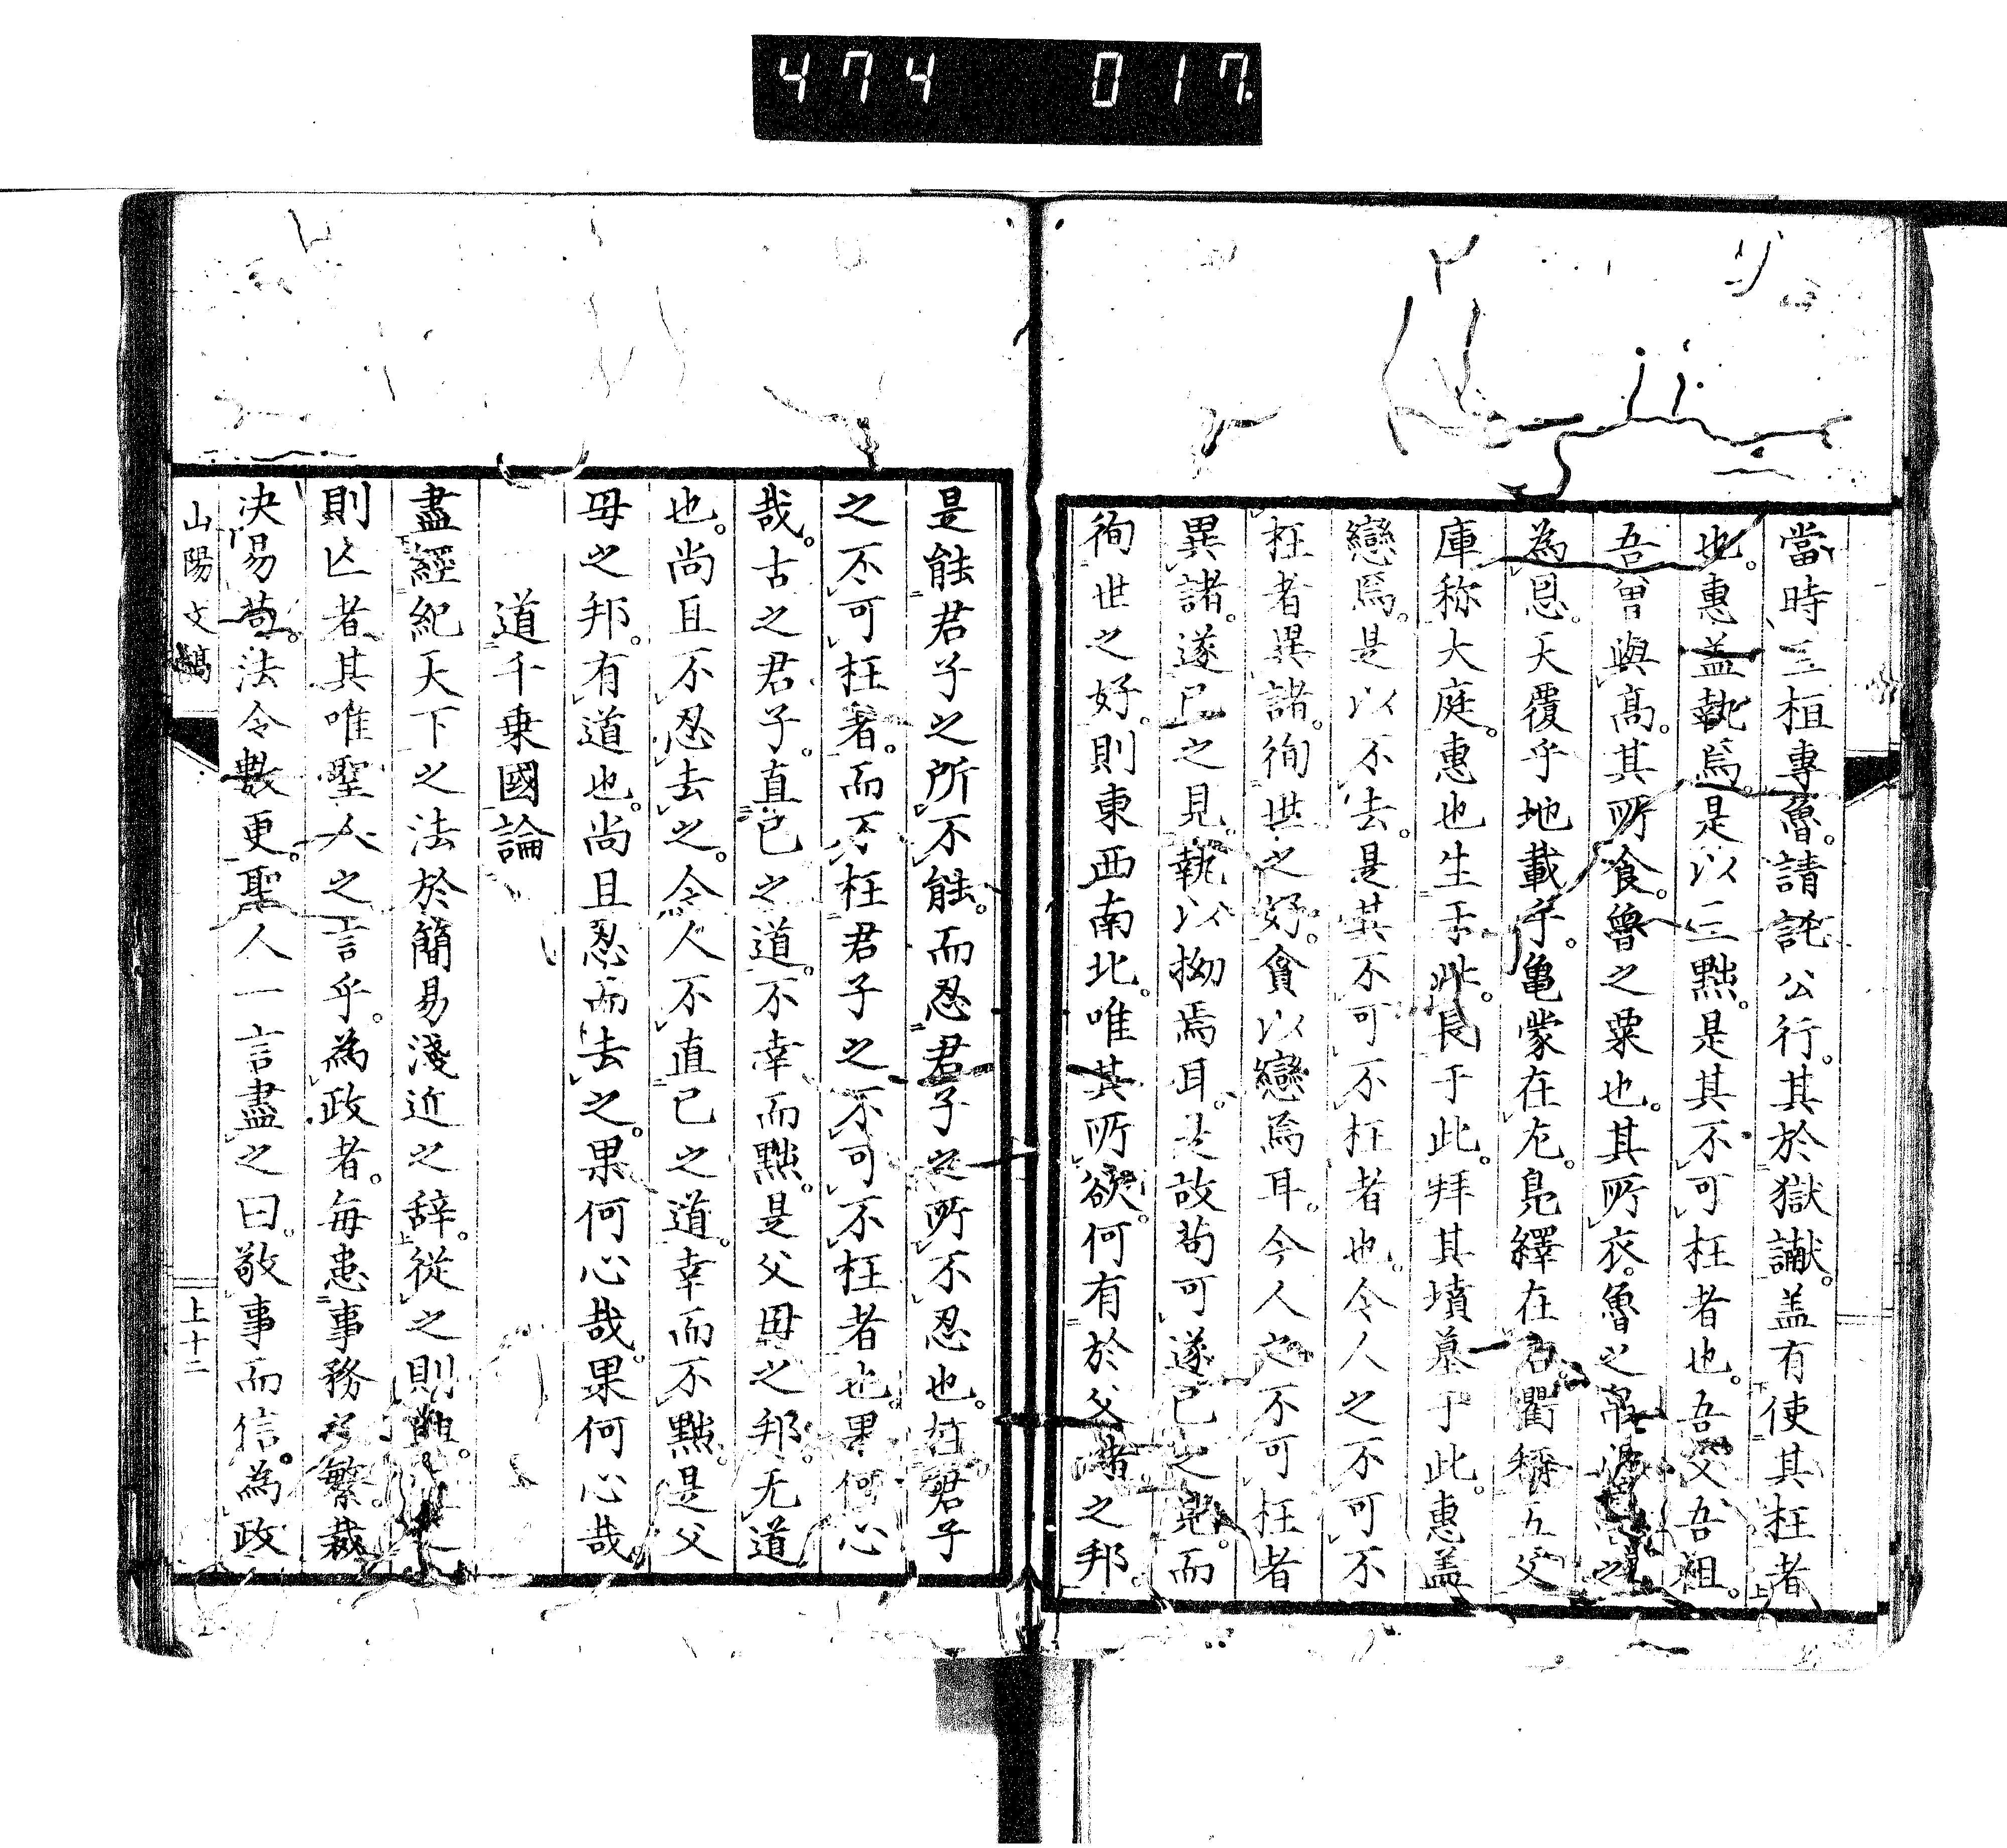 474 017
當時三桓專魯。請託公行。其於獄讞。盖有使其枉者
也。惠盖執焉。是以三黜。是其不可枉者也。吾父吾祖。
吾曾與高。其所食。魯之粟也。其所衣。魯之帛之
為恩。天覆乎地載乎。亀蒙在左。鳧繹在右。衢稱五父
庫称大庭。惠也生于此。長于此。拜其墳墓于此。惠盖
戀焉。是以不去。是其不可不枉者也。今人之不可不
枉者異諸。徇世之好。貪以戀焉耳。今人之不可枉者
異諸。遂己之見。執以拗焉耳。是故苟可遂己之見。而
徇世之好。則東西南北。唯其所欲。何有於父母之邦。
是能君子之所不能。而忍君子之所不忍也。在君子
之不可枉者。而不枉君子之不可不枉者也。果何心
哉。古之君子。直己之道。不幸而黜。是父母之邦。无道
也。尚且不忍去之。今人不直己之道。幸而不黜。是父
母之邦。有道也。尚且忍而去之。果何心哉。果何心哉。
道千乗國論
盡經紀天下之法於簡易淺近之辞。從之則難。
則亡者。其唯聖人之言乎。為政者。毎患事務繁。裁
决易苟。法令數更。聖人一言盡之曰。敬事而信。為政
山陽文稿
上十二